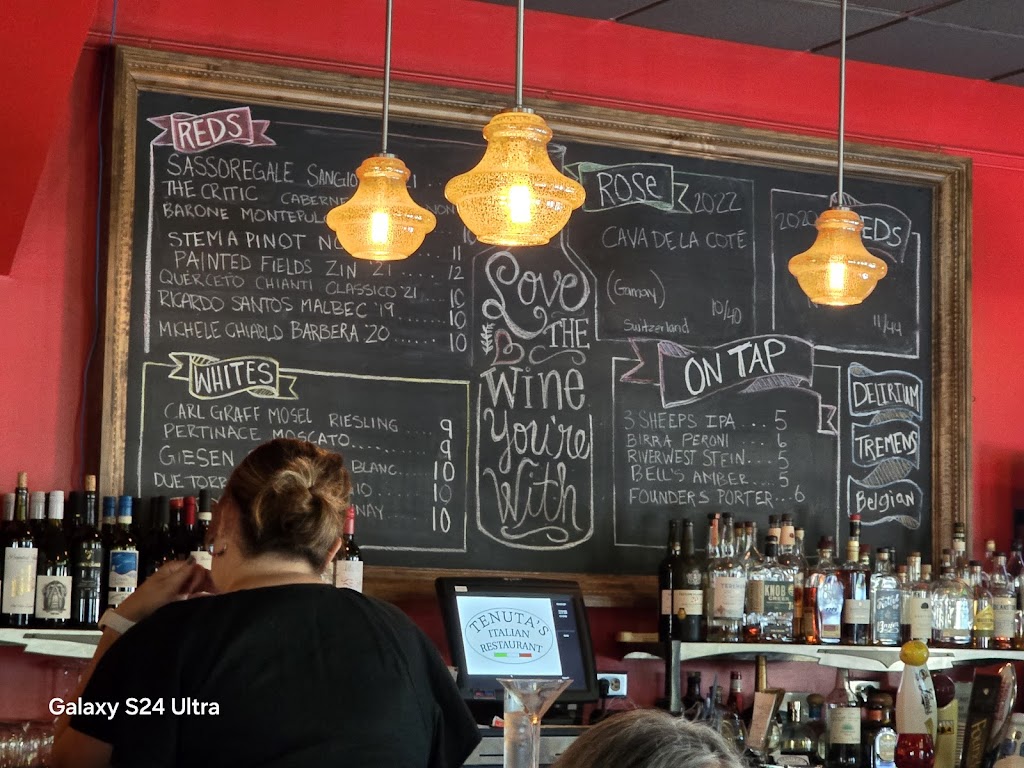 REDS
SASSOREGALE SANGIO
THE CRITIC CABERNE NON
BARONE MONTEPUL
STEMA PINOT NO
PAINTED FIELDS ZIN '21 12
QUERCETO CHIANTI CLASSICO '21 10
RICARDO SANTOS MALBEC '19 10
MICHELE CHIARLO BARBERA '20 10
WHITES
CARL GRAFF MOSEL RIESLING 9
PERTINACE MOSCATO 9
GIESEN BLANC 10
DUE TORR IO 10
NAY 10
Love
THE
Wine
You're
With
ROSE 2022
CAVA DE LA COTE
(Gamay)
10/40
Switzerland
2020 EDS
11/44
ON TAP
3 SHEEPS IPA 5
BIRRA PERONI 6
RIVERWEST STEIN 5
BELL'S AMBER 5
FOUNDERS PORTER 6
DELIRIUM
TREMENS
Belgian
TENUTA'S
ITALIAN
RESTAURANT
KNOB
Galaxy S24 Ultra